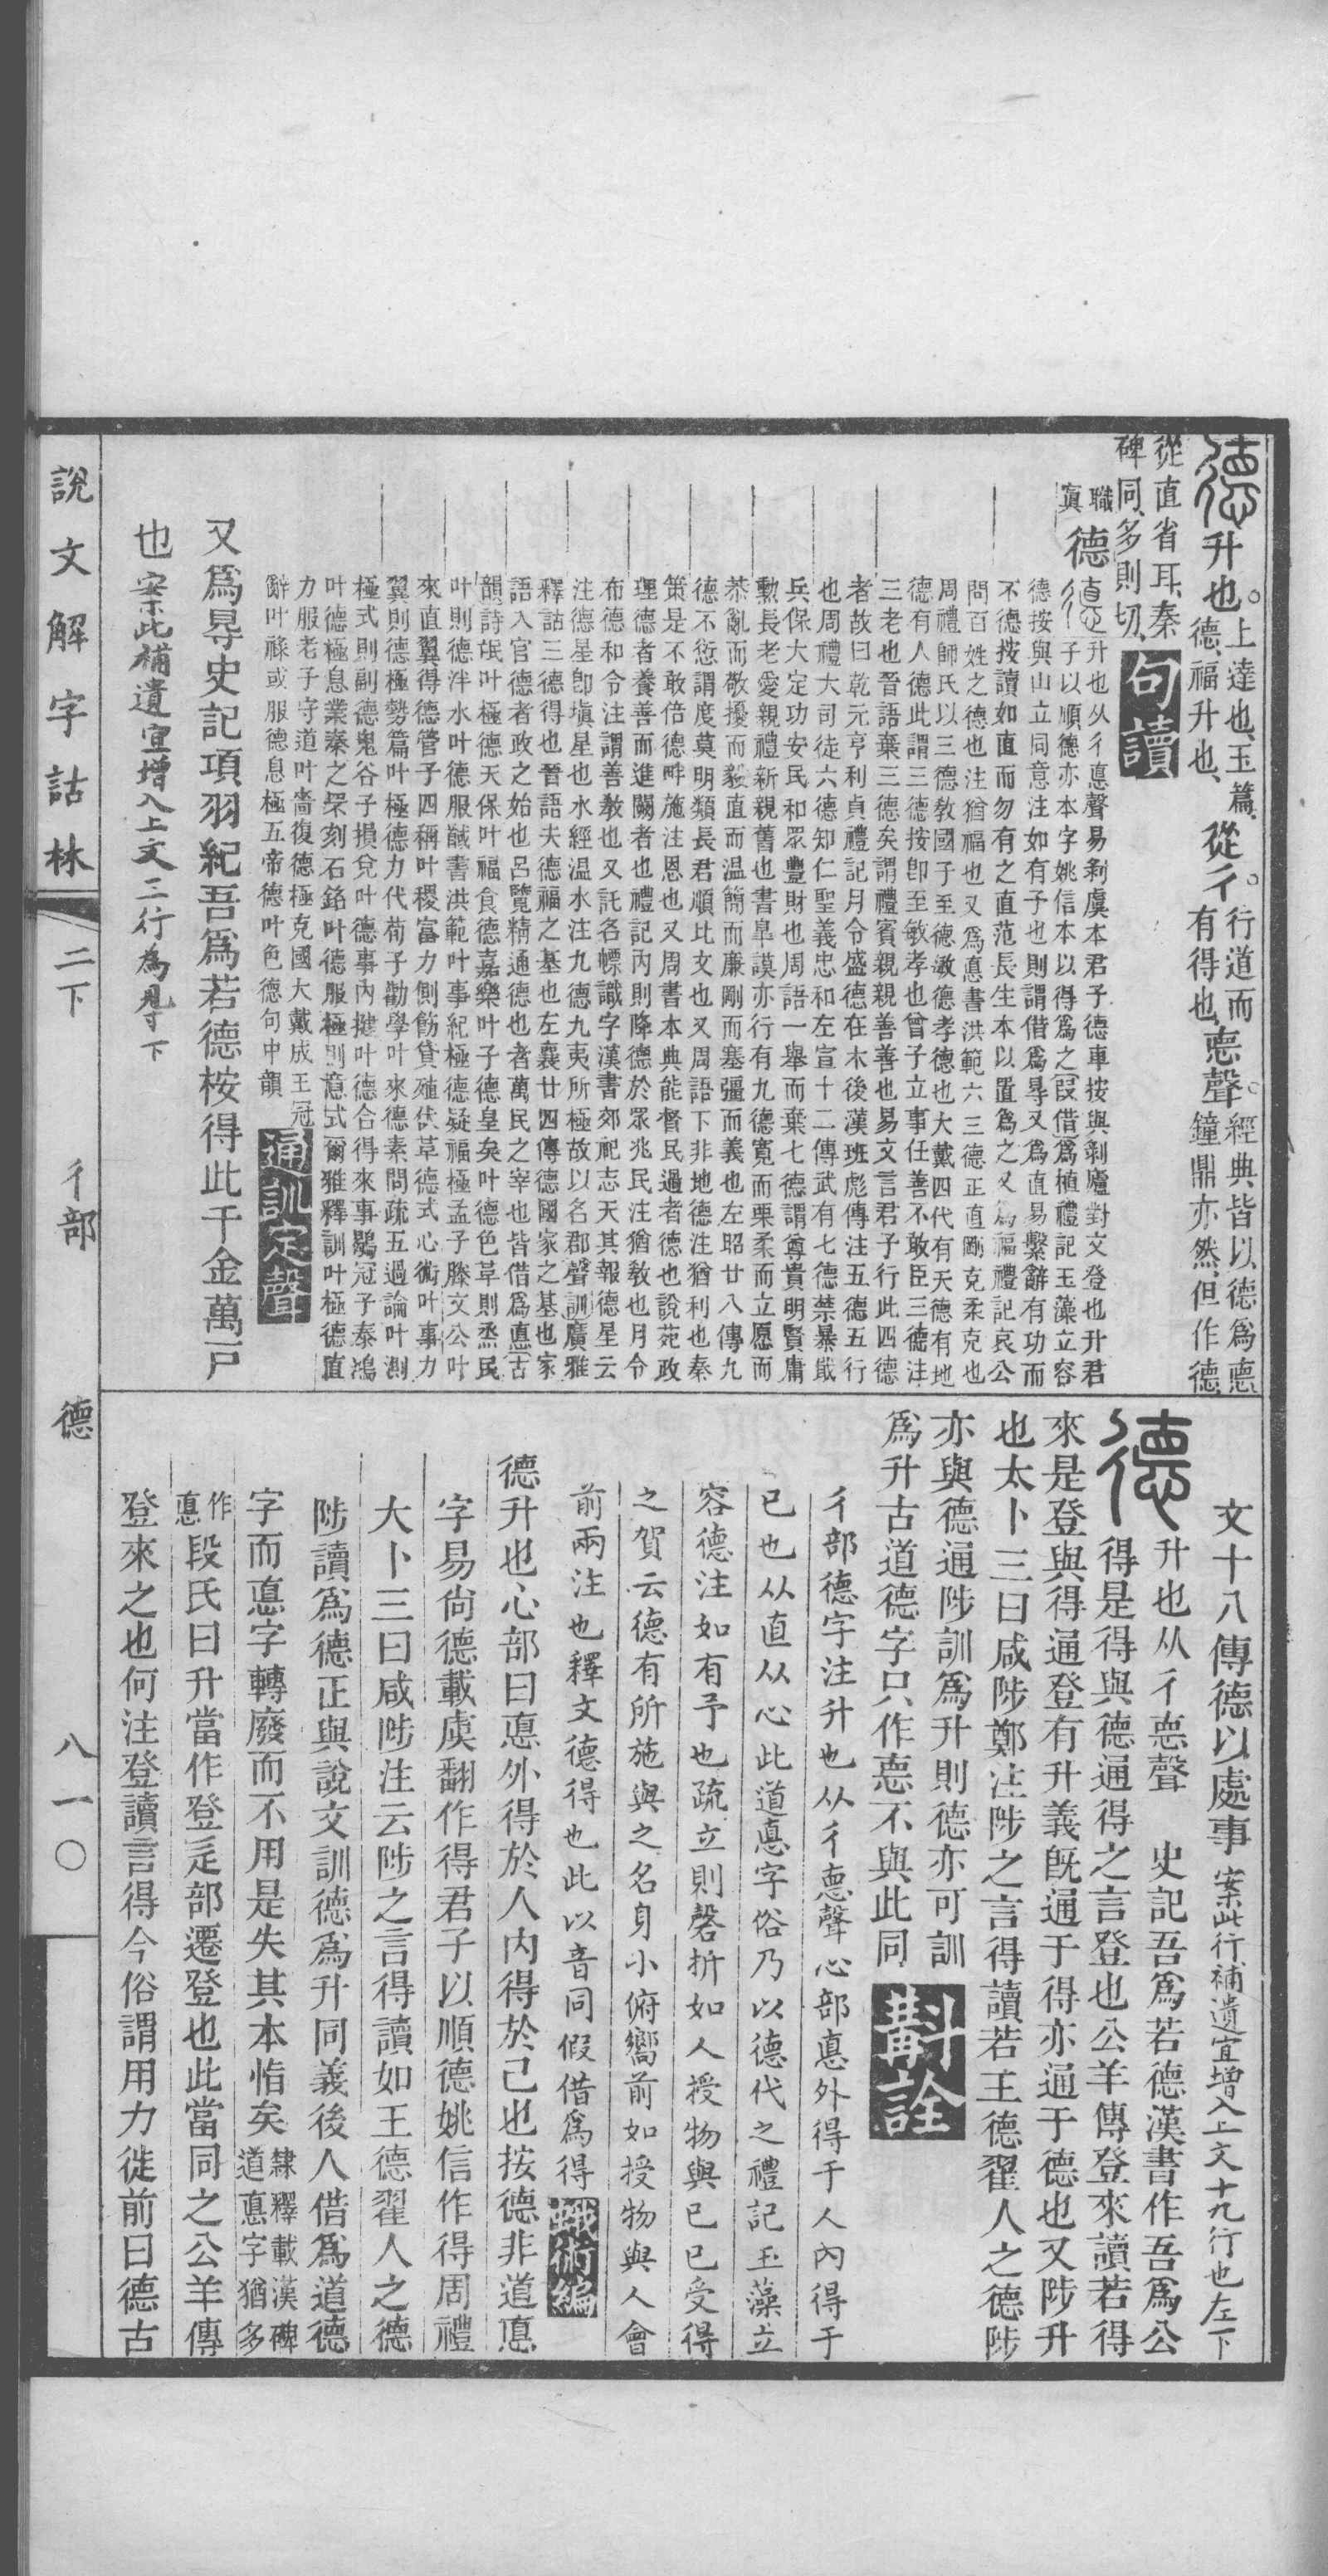 德升也。上達也、玉篇、德、福升也、從彳。行道而有得也、悳聲。經典皆以德爲悳鐘鼎亦然、但作德
從直省耳、秦碑同、多則切、句讀
職寘德
德升也从彳悳聲易剥虞本君子德車按與剝廬對文登也升君
子以順德亦本字姚信本以得爲之叚借爲植禮記玉藻立容
德按與山立同意注如有予也則謂借爲㝵又爲直易繫辭有功而
不德按讀如直而勿有之直范長生本以置爲之又爲福禮記哀公
問百姓之德也注猶福也又爲悳書洪範六三德正直剛克柔克也
周禮師氏以三德敎國子至德敏德孝德也大戴四代有天德有地
德有人德此謂三德按卽至敏孝也曾子立事任善不敢臣三德注
三老也晉語棄三德矣謂禮賓親親善善也易文言君子行此四德
者故曰乾元亨利貞禮記月令盛德在木後漢班彪傳注五德五行
也周禮大司徒六德知仁聖義忠和左宣十二傳武有七德禁暴戢
兵保大定功安民和眾豐財也周語一舉而棄七德謂尊貴明賢庸
勳長老愛親禮新親舊也書臯謨亦行有九德寬而栗柔而立愿而
恭亂而敬擾而毅直而温簡而廉剛而塞彊而義也左昭廿八傳九
德不愆謂度莫明類長君順比文也又周語下非地德注猶利也秦
策是不敢倍德畔施注恩也又周書本典能督民過者德也說苑政
理德者養善而進闕者也禮記內則降德於眾兆民注猶敎也月令
布德和令注謂善敎也又託名幖識字漢書郊祀志天其報德星云
注德星卽塡星也水經温水注九德九夷所極故以名郡聲訓廣雅
釋詁三德得也晉語夫德福之基也左襄廿四傳德國家之基也家
語入官德者政之始也呂覽精通德也者萬民之宰也皆借爲悳古
韻詩氓叶極德天保叶福食德嘉樂叶子德皇矣叶德色革則烝民
叶則德泮水叶德服馘書洪範叶事紀極德疑福極孟子滕文公叶
來直翼得德管子四稱叶稷富力側飭貸殖伏革德式心術叶事力
翼則德極勢篇叶極德力代荀子勸學叶來德素問疏五過論叶測
極式則副德鬼谷子損兌叶德事內揵叶德合得來事鶡冠子泰鴻
叶德極息業秦之罘刻石銘叶德服極則意式爾雅釋訓叶極德直
力服老子守道叶嗇復德極克國大戴成王冠
辭叶祿或服德息極五帝德叶色德句中韻通訓定聲
又爲㝵史記項羽紀吾爲若德桉得此千金萬戶
也案此補遺宜增入上文二行為㝵下
說文解字詁林 二下 彳部 德 八一〇
文十八傳德以處事案此行補遺宜增入上文十九行也左下
德升也从彳悳聲 史記吾爲若德漢書作吾爲公
得是得與德通得之言登也公羊傳登來讀若得
來是登與得通登有升義旣通于得亦通于德也又陟升
也太卜三曰咸陟鄭注陟之言得讀若王德翟人之德陟
亦與德通陟訓爲升則德亦可訓
爲升古道德字只作悳不與此同斠詮
彳部德字注升也从彳悳聲心部悳外得于人內得于
已也从直从心此道悳字俗乃以德代之禮記玉藻立
容德注如有予也疏立則磬折如人授物與已已受得
之賀云德有所施與之名身小俯嚮前如授物與人會
前兩注也釋文德得也此以音同假借爲得蛾術編
德升也心部曰悳外得於人內得於己也按德非道悳
字易尙德載虞翻作得君子以順德姚信作得周禮
大卜三曰咸陟注云陟之言得讀如王德翟人之德
陟讀爲德正與說文訓德爲升同義後人借爲道德
字而悳字轉廢而不用是失其本恉矣隸釋載漢碑道悳字猶多
作悳段氏曰升當作登辵部遷登也此當同之公羊傳
登來之也何注登讀言得今俗謂用力徙前曰德古